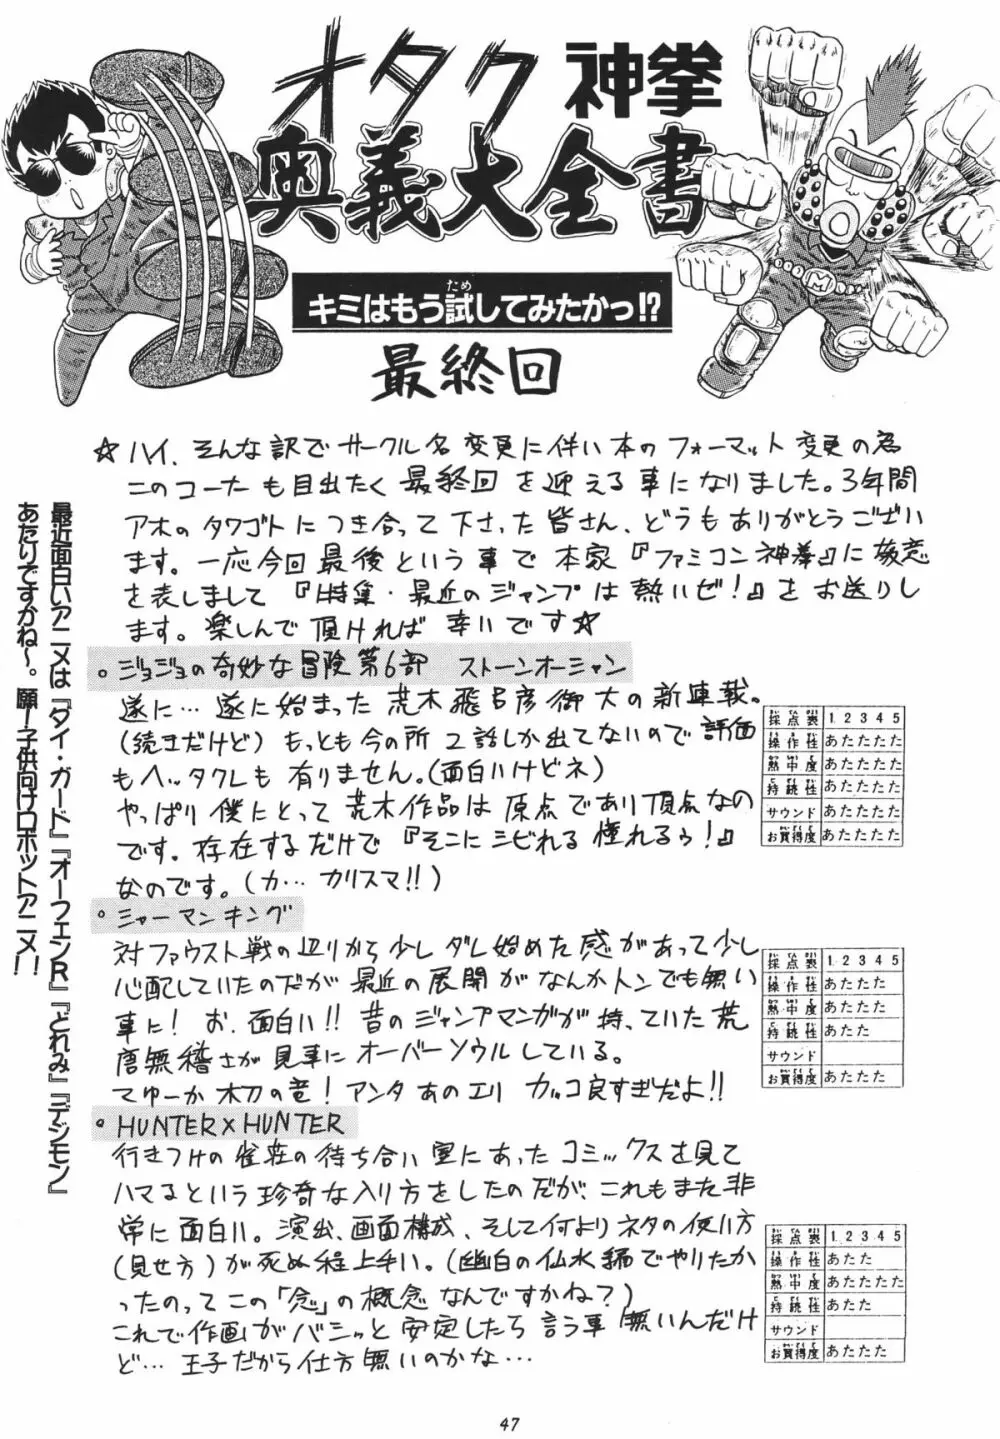 オタク神拳
奥義大全書
キミはもう試してみたかっ!?
ため
最終回
☆ハイ、そんな訳でサークル名変更に伴い本のフォーマット変更の為
このコーナーも目出たく最終回を迎える事になりました。3年間
アホのタワゴトにつき合って下さった皆さん、どうもありがとうござい
ます。一応今回最後という事で本家『ファミコン神拳』に敬意
を表しまして『特集・最近のジャンプは熱いゼ!』をお送りし
ます。楽しんで頂ければ幸いです☆
最近面白いアニメは『ダイ・ガード』『オーフェンR』『どれみ』『デジモン』
あたりですかね〜。願!子供向けロボットアニメ!!
。ジョジョの奇妙な冒険第6部 ストーンオーシャン
遂に…遂に始まった荒木飛呂彦御大の新連載。
(続きだけど)もっとも今の所2話しか出てないので評価
もヘッタクレも有りません。(面白いけどネ)
やっぱり僕にとって荒木作品は原点であり頂点なの
です。存在するだけで『そこにシビれる憧れるゥ!』
なのです。(カ…カリスマ!!)
採点表 1 2 3 4 5
操作性 あたたたた
熱中度 あたたたた
持続性 あたたたた
サウンド あたたたた
お買得度 あたたたた
。シャーマンキング
対ファウスト戦の辺りから少しダレ始めた感があって少し
心配していたのだが最近の展開がなんかトンでも無い
事に!お、面白い!!昔のジャンプマンガが持っていた荒
唐無稽さが見事にオーバーソウルしている。
てゆーか木刀の竜!アンタあのエリカッコ良すぎだよ!!
採点表 1 2 3 4 5
操作性 あたたた
熱中度 あたたたた
持続性 あたた
サウンド
お買得度 あたたた
。HUNTER×HUNTER
行きつけの雀荘の待ち合い室にあったコミックスを見て
ハマるという珍奇な入り方をしたのだが、これもまた非
常に面白い。演出、画面構成、そして何よりネタの使い方
(見せ方)が死ぬ程上手い。(幽白の仏水編でやりたか
ったのってこの「念」の概念なんですかね?)
これで作画がバシッと安定したら言う事無いんだけ
ど…王子だから仕方無いのかな…
採点表 1 2 3 4 5
操作性 あたた
熱中度 あたたたた
持続性 あたた
サウンド
お買得度 あたたた
M
47